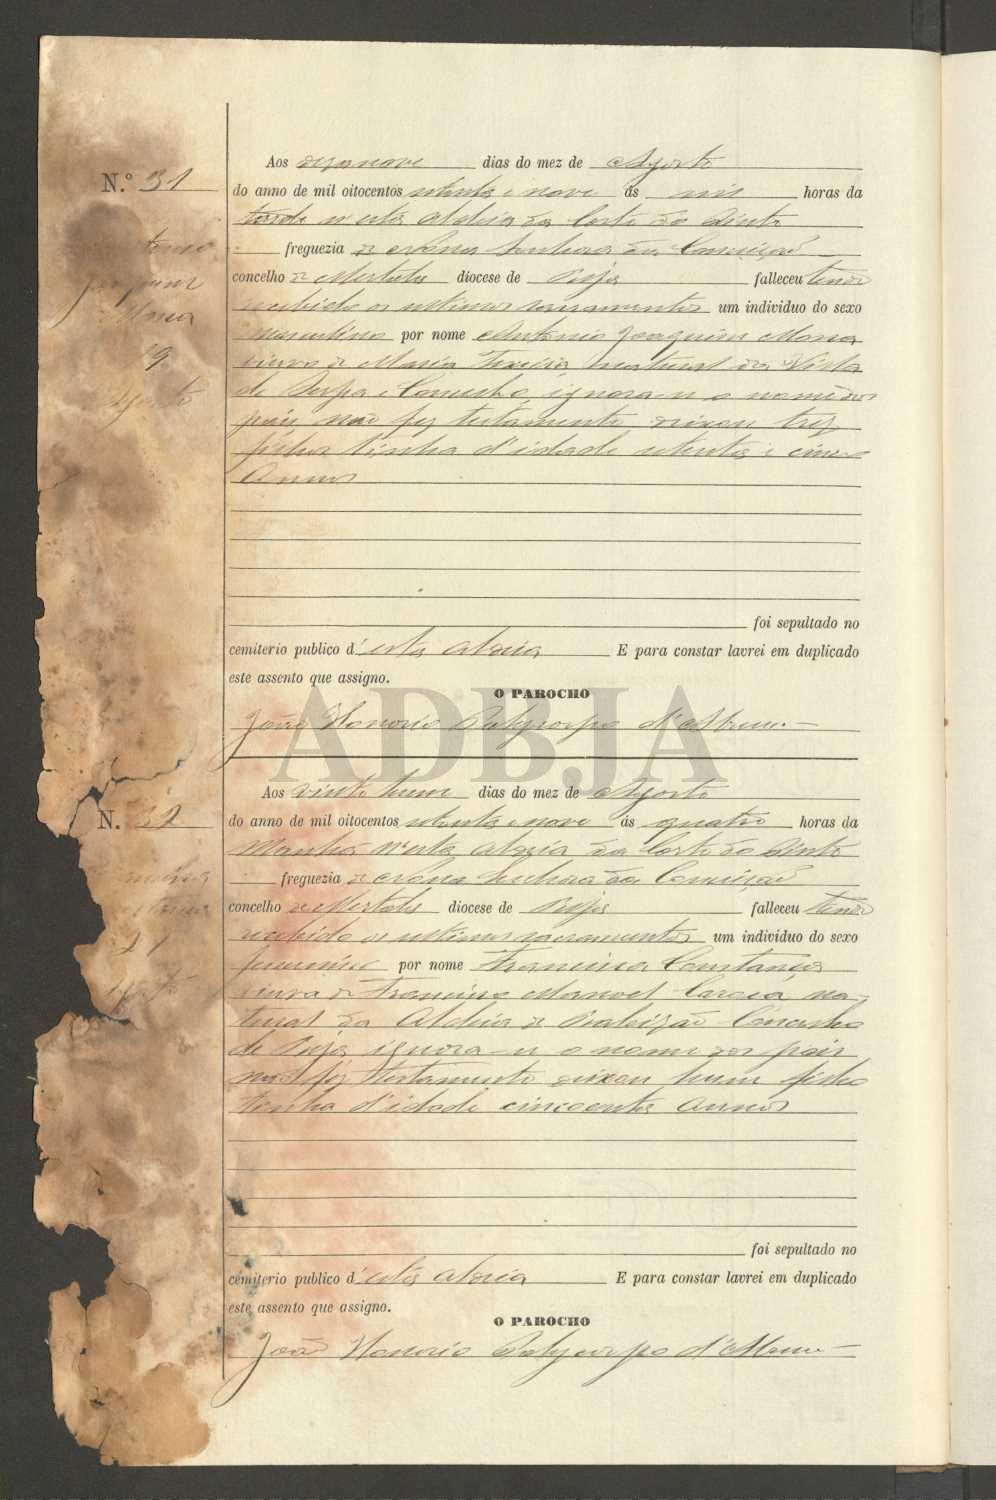 N.º 31
Antonio
Joaquim
Mona
19
Agosto
Aos dezanove dias do mez de Agosto
do anno de mil oitocentos setenta e nove ás seis horas da
tarde n'esta Aldeia da Corte do Pinto
freguezia de Nossa Senhora da Conceição
concelho de Mertola diocese de Beja falleceu tendo
recebido os ultimos sacramentos um individuo do sexo
masculino por nome Antonio Joaquim Mona
viuvo de Maria Tereza natural da Villa
de Serpa e Concelho, ignora-se o nome dos
pais não fez testamento deixou trez
filhos tinha d'idade setenta e cinco
Annos
foi sepultado no
cemiterio publico d'esta Aldeia E para constar lavrei em duplicado
este assento que assigno.
O PAROCHO
João Honorio Polycarpo d'Abreu
ADBJA
N. 32
21
Aos vinte hum dias do mez de Agosto
do anno de mil oitocentos setenta e nove ás quatro horas da
Manhã n'esta Aldeia da Corte do Pinto
freguezia de Nossa Senhora da Conceição
concelho de Mertola diocese de Beja falleceu tendo
recebido os ultimos sacramentos um individuo do sexo
femenino por nome Francisca Constança
viuva de Francisco Manoel Garcia, na-
tural da Aldeia de Baleizão Concelho
de Beja, ignora-se o nome dos pais
não fez testamento deixou hum filho
tinha d'idade cincoenta Annos
foi sepultado no
cemiterio publico d'esta Aldeia E para constar lavrei em duplicado
este assento que assigno.
O PAROCHO
João Honorio Polycarpo d'Abreu